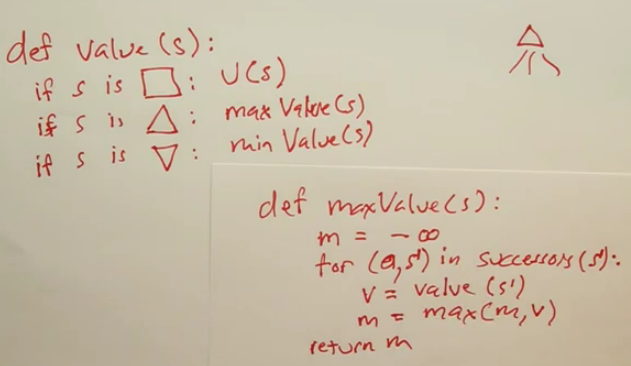 def value(s):
if s is □: U(s)
if s is △: maxValue(s)
if s is ▽: minValue(s)
def maxValue(s):
m = -∞
for (a,s') in successors(s):
v = value(s')
m = max(m,v)
return m